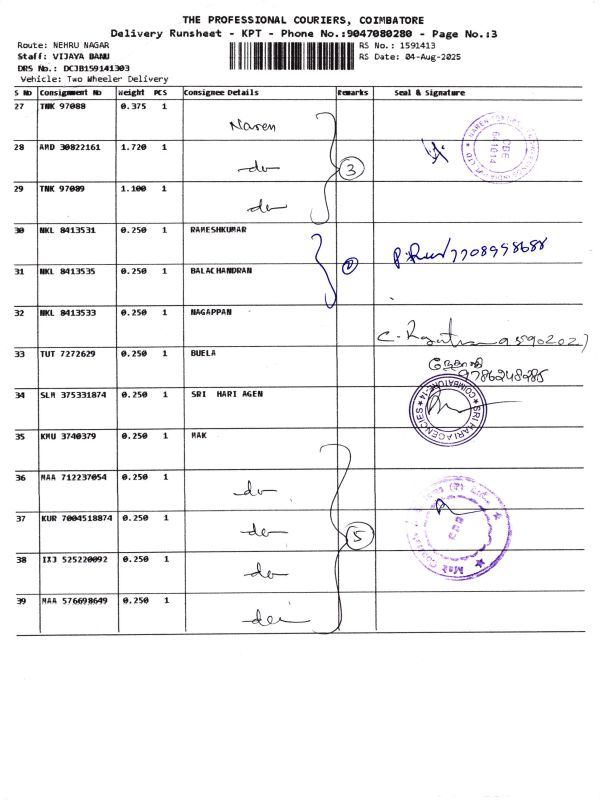 THE PROFESSIONAL COURIERS, COIMBATORE
Delivery Runsheet - KPT - Phone No.:9047080280 - Page No.:3
Route: NEHRU NAGAR
RS No.: 1591413
Staff: VIJAYA BANU
RS Date: 04-Aug-2025
DRS No.: DCJB159141303
Vehicle: Two Wheeler Delivery
S No Consignment No Weight PCS Consignee Details Remarks Seal & Signature
27 TNK 97088 0.375 1
Naren
28 AMD 30822161 1.720 1
do
3
29 TNK 97089 1.100 1
do
30 NKL 8413531 0.250 1 RAMESHKUMAR
7708998688
31 NKL 8413535 0.250 1 BALACHANDRAN
32 NKL 8413533 0.250 1 NAGAPPAN
33 TUT 7272629 0.250 1 BUELA
9786248985
34 SLM 375331874 0.250 1 SRI HARI AGEN
SRI HARI AGENCIES COIMBATORE-14
35 KMU 3740379 0.250 1 MAK
36 MAA 712237054 0.250 1
do
37 KUR 7004518874 0.250 1
do
5
38 IXJ 525220092 0.250 1
do
39 MAA 576698649 0.250 1
do